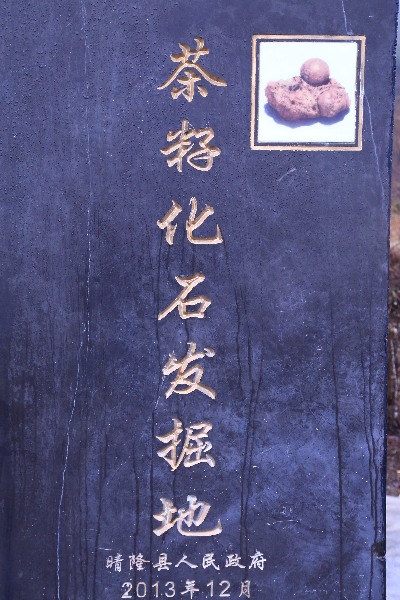 茶籽化石发掘地
晴隆县人民政府
2013年12月